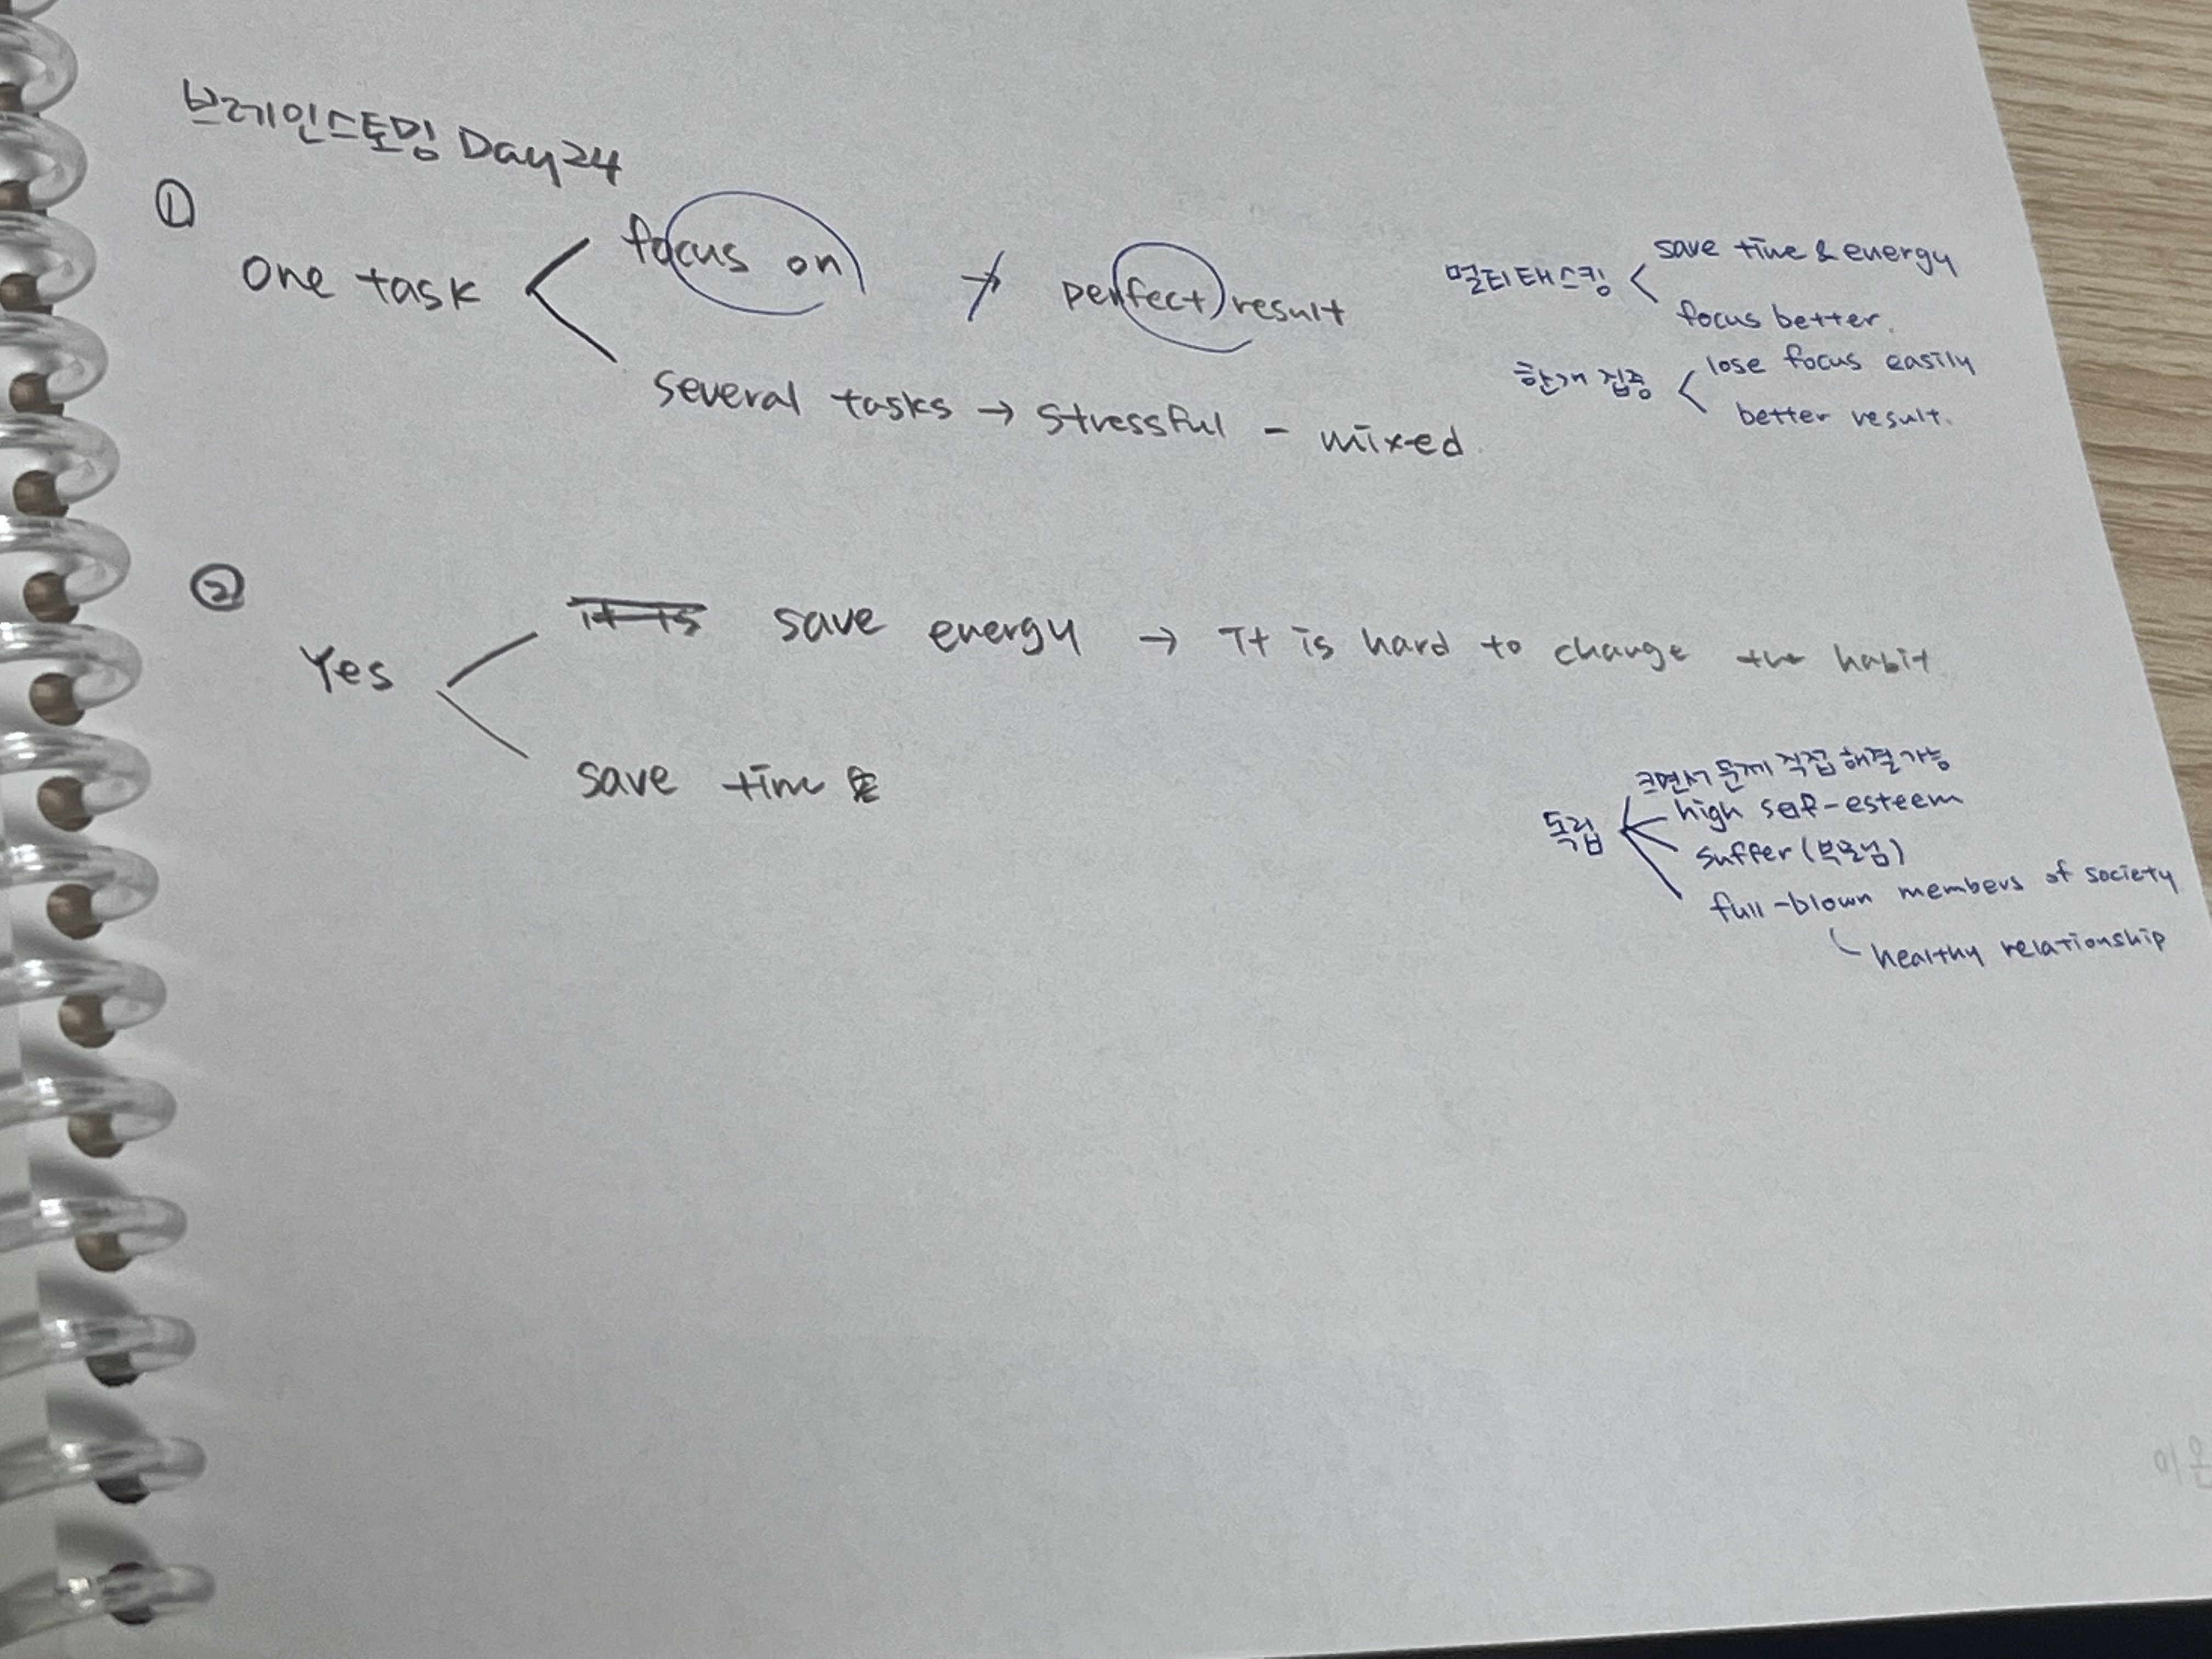 브레인스토밍 Day 24
①
one task < focus on → perfect result
several tasks → stressful - mixed
멀티태스킹 < save time & energy
focus better.
한개 집중 < lose focus easily
better result.
②
Yes < it is save energy → It is hard to change the habit
save time
독립
크면서 문제 직접 해결 가능
high self-esteem
suffer (부모님)
full-blown members of society
healthy relationship